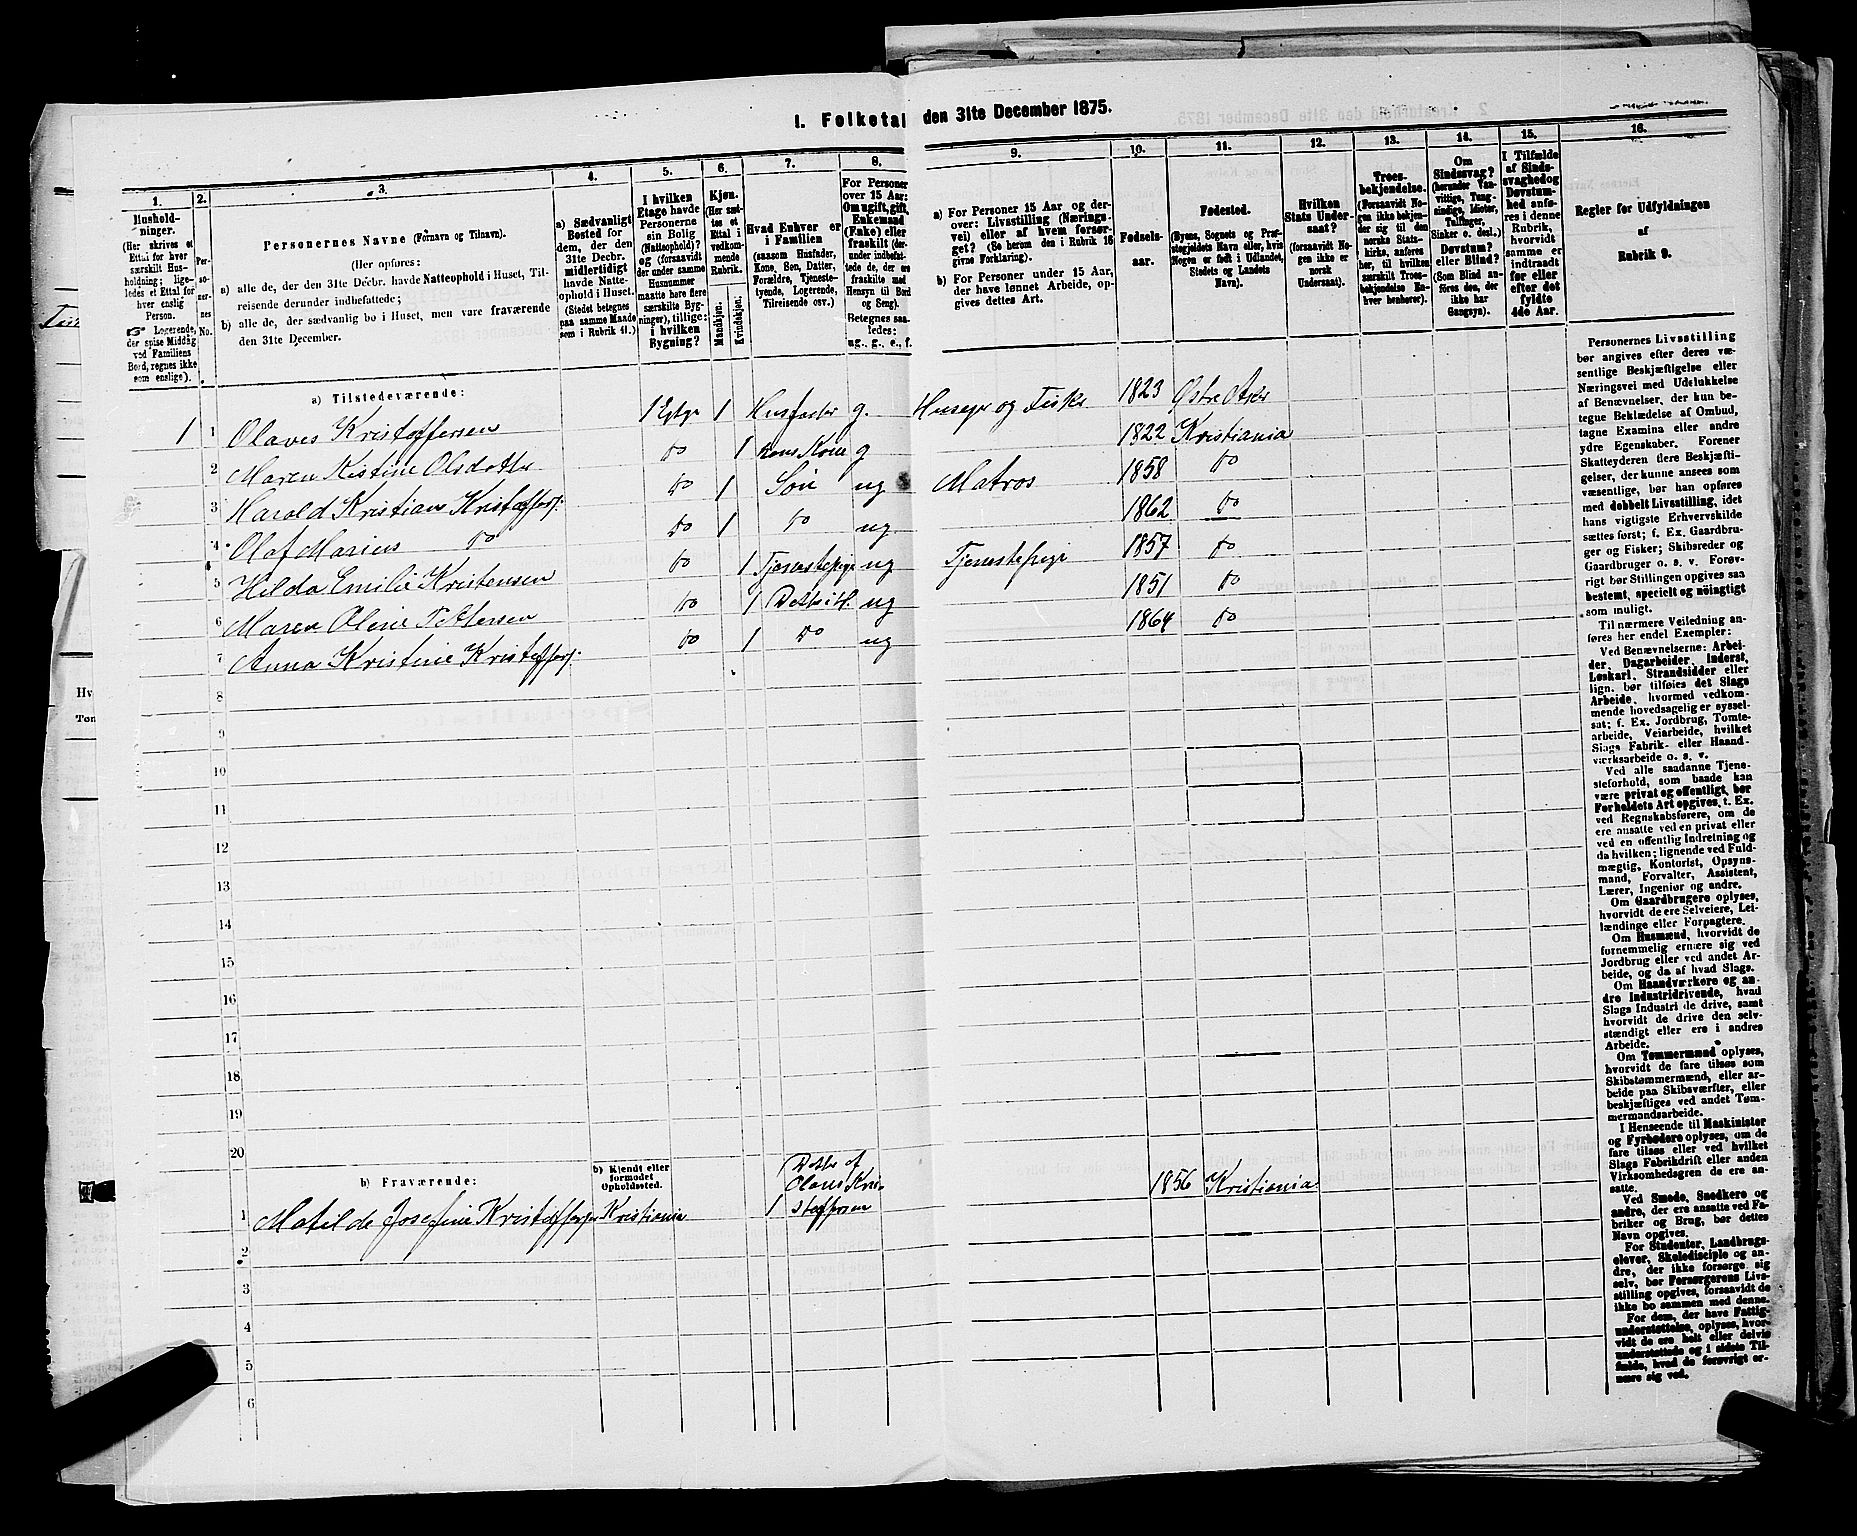 1. Folketal den 31te December 1875.
1.
Hushold-
ninger.
(Her skrives et
Ettal for hver
særskilt Hus-
holdning; lige-
ledes et Ettal for
hver enslig
Person.
Logerende,
der spise Middag
ved Familiens
Bord, regnes ikke
som enslige).
2.
Per-
so-
ner-
nes
No.
3.
Personernes Navne (Fornavn og Tilnavn).
(Her opføres:
a) alle de, der den 31te Decbr. havde Natteophold i Huset, Til-
reisende derunder indbefattede;
b) alle de, der sædvanlig bo i Huset, men vare fraværende
den 31te December.
4.
a) Sædvanligt
Bosted for
dem, der den
31te Decbr.
midlertidigt
havde Natte-
ophold i Huset.
(Stedet betegnes
paa samme Maade
som i Rubrik 11.)
5.
I hvilken
Etage havde
Personerne
sin Bolig
(Natteophold)?
og (forsaavidt
der under samme
Husnummer
maatte høre flere
særskilte Byg-
ninger), tillige:
i hvilken
Bygning?
6.
Kjøn.
(Her sæt-
tes et
Ettal i
vedkom-
mende
Rubrik.
Mandkjøn.
Kvindekjøn.
7.
Hvad Enhver er
i Familien
(saasom Husfader,
Kone, Søn, Datter,
Forældre, Tjeneste-
tyende, Logerende,
Tilreisende osv.)
8.
For Personer
over 15 Aar:
Om ugift, gift,
Enkemand
(Enke) eller
fraskilt (der-
under indbefat-
tede de, der ere
fraskilte med
Hensyn til Bord
og Seng).
Betegnes saa-
ledes:
ug., g., e., f.
9.
a) For Personer 15 Aar og der-
over: Livsstilling (Nærings-
vei) eller af hvem forsør-
get? (Se herom den i Rubrik 16
givne Forklaring).
b) For Personer under 15 Aar,
der have lønnet Arbeide, op-
gives dettes Art.
10.
Fødsels-
aar.
11.
Fødested.
(Byens, Sognets og Præ-
stegjeldets Navn eller, hvis
Nogen er født i Udlandet,
Stedets og Landets
Navn).
12.
Hvilken
Stats Under-
saat?
(forsaavidt No-
gen ikke er
norsk
Undersaat).
13.
Troes-
bekjendelse.
(Forsaavidt No-
gen ikke bekjen-
der sig til den
norske Stats-
kirke, anføres
her, til hvilken
særskilt Troes-
bekjendelse En-
hver henhører).
14.
Om
Sindssvag?
(herunder Van-
vittige, Tung-
sindige, Idioter,
Tullinger,
Sinker o. desl.)
Døvstum?
eller Blind?
(Som Blind an-
føres den, der
ikke har
Gangsyn).
15.
I Tilfælde
af Sinds-
svaghed og
Døvstum-
hed anfø-
res i denne
Rubrik,
hvorvidt
samme er
indtraadt
før eller
efter det
fyldte
4de Aar.
16.
Regler for Udfyldningen
af
Rubrik 9.
a) Tilstedeværende:
1 1 Olaves Kristoffersen 1 Etge 1 Husfader g. Huseger og Fisker 1823 Østre Aker
2 Maren Kistine Olsdotter do 1 hans Kone g 1822 Kristiania
3 Harold Kristian Kristoffers: do 1 Søn ug Matros 1858 do
4 Olaf Marius do do 1 do ug 1862 do
5 Hilda Emilie Kristensen do 1 Tjenestepige ug Tjenestepige 1857 do
6 Maren Oline Pettersen do 1 ug 1851 do
7 Anna Kristine Kristoffers: do 1 do ug 1864 do
8
9
10
11
12
13
14
15
16
17
18
19
20
b) Fraværende:
b) Kjendt eller
formodet
Opholdssted.
1 Matilde Josefine Kristoffersen Kristiania 1 Datter af Olaves Kristoffersen 1856 Kristiania
2
3
4
5
6
Personernes Livsstilling
bør angives efter deres væ-
sentlige Beskjæftigelse eller
Næringsvei med Udelukkelse
af Benævnelser, der kun be-
tegne Beklædelse af Ombud,
tagne Examina eller andre
ydre Egenskaber. Forener
Skatteyderen flere Beskjæfti-
gelser, der kunne ansees som
væsentlige, bør han opføres
med dobbelt Livsstilling, idet
hans vigtigste Erhvervskilde
sættes først; f. Ex. Gaardbru-
ger og Fisker; Skibsreder og
Gaardbruger o. s. v. Forøv-
rigt bør Stillingen opgives saa
bestemt, specielt og nøiagtigt
som muligt.
Til nærmere Veiledning an-
føres her endel Exempler:
Ved Benævnelserne: Arbei-
der, Dagarbeider, Inderst,
Løskarl, Strandsidder eller
lign. bør tilføies det Slags
Arbeide, hvormed vedkom-
mende hovedsagelig er syssel-
sat; f. Ex. Jordbrug, Tomte-
arbeide, Veiarbeide, hvilket
Slags Fabrik- eller Haand-
værksarbeide o. s. v.
Ved alle saadanne Tjene-
steforhold, som baade kan
være privat og offentligt, bør
Forholdets Art opgives, t. Ex.
ved Regnskabsførere, om de
ere ansatte ved en privat eller
ved en offentlig Indretning og
da hvilken; lignende ved Fuld-
mægtig, Kontorist, Opsyns-
mand, Forvalter, Assistent,
Lærer, Ingeniør og andre.
Om Gaardbrugere oplyses,
hvorvidt de ere Selveiere, Lei-
lændinge eller Forpagtere.
Om Husmænd, hvorvidt de
fornemmelig ernære sig ved
Jordbrug eller ved andet Ar-
beide, og da af hvad Slags.
Om Haandværkere og an-
dre Industridrivende, hvad
Slags Industri de drive, samt
hvorvidt de drive den selv-
stændigt eller ere i andres
Arbeide.
Om Tømmermænd oplyses,
hvorvidt de fare tilsøs som
Skibstømmermænd, eller ar-
beide paa Skibsværfter, eller
beskjæftiges ved andet Tøm-
mermandsarbeide.
I Henseende til Maskinister
og Fyrbødere oplyses, om de
fare tilsøs eller ved hvilket
Slags Fabrikdrift eller anden
Virksomhed de ere an-
satte.
Ved Smede, Snedkere og
andre, der ere ansatte ved Fa-
briker og Brug, bør dettes
Navn opgives.
For Studenter, Landbrugs-
elever, Skoledisciple og an-
dre, der ikke forsørge sig
selv, bør Forsørgerens Livs-
stilling opgives, forsaavidt de
ikke bo sammen med denne.
For dem, der have Fattig-
understøttelse, oplyses, hvor-
vidt de ere helt eller delvis
understøttede og i sidste Til-
fælde, hvad de forøvrigt er-
nære sig ved.